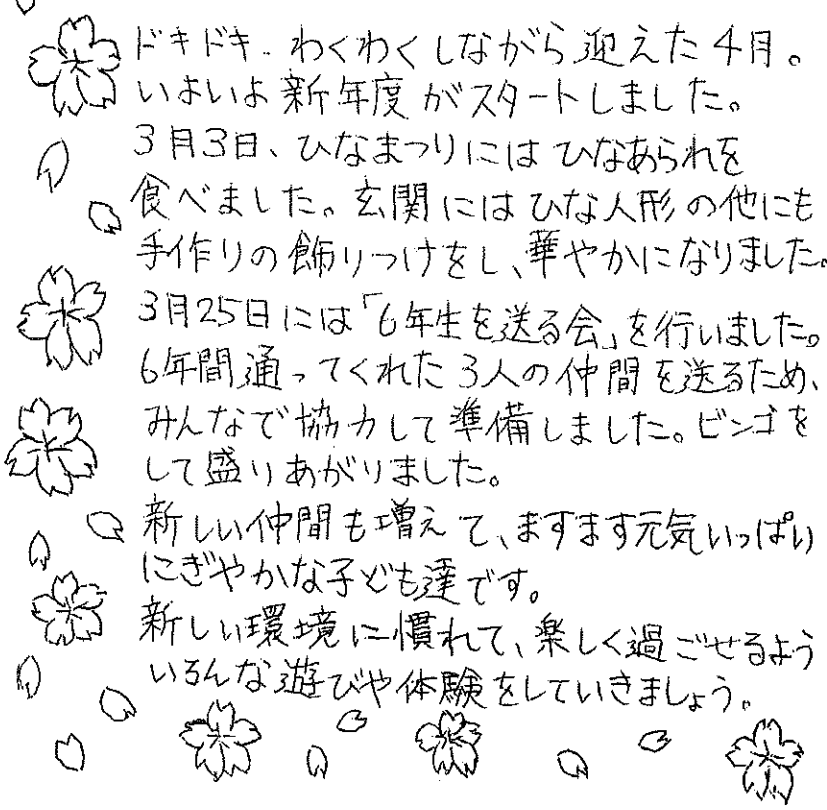 ドキドキ、わくわくしながら迎えた4月。
いよいよ新年度がスタートしました。
3月3日、ひなまつりにはひなあられを
食べました。玄関にはひな人形の他にも
手作りの飾りつけをし、華やかになりました。
3月25日には「6年生を送る会」を行いました。
6年間通ってくれた3人の仲間を送るため、
みんなで協力して準備しました。ビンゴを
して盛りあがりました。
新しい仲間も増えて、ますます元気いっぱい
にぎやかな子ども達です。
新しい環境に慣れて、楽しく過ごせるよう
いろんな遊びや体験をしていきましょう。